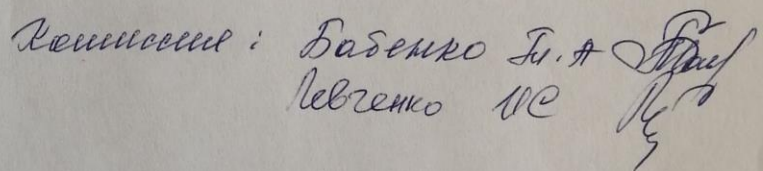 Комиссия: Бабенко Тл. А
Левченко ЮС